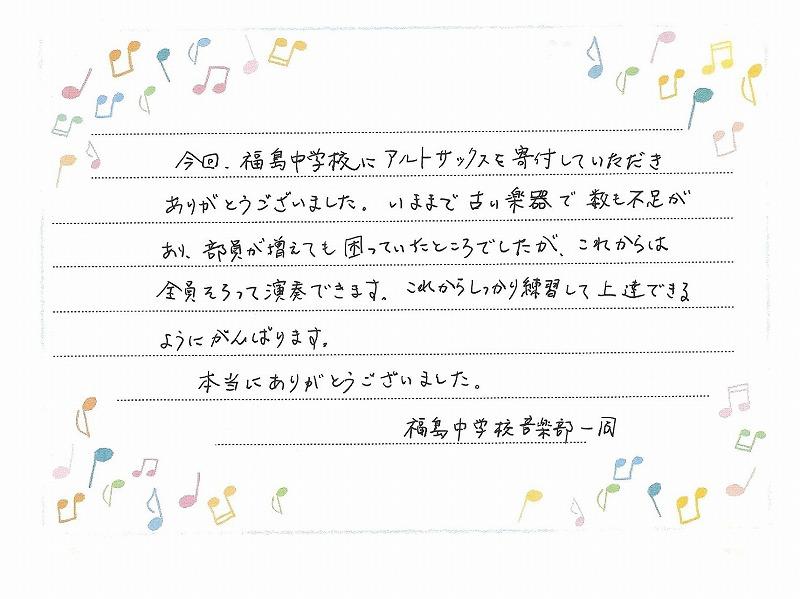 今回、福島中学校にアルトサックスを寄付していただき
ありがとうございました。いままで古い楽器で数も不足が
あり、部員が増えても困っていたところでしたが、これからは
全員そろって演奏できます。これからしっかり練習して上達できる
ようにがんばります。
本当にありがとうございました。
福島中学校音楽部一同